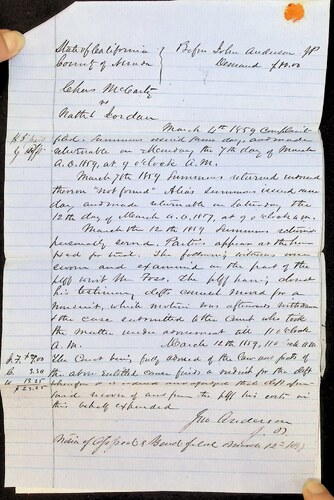 State of California
County of Nevada
Before John Anderson JP
Demand $
Chas McCarty
vs
Jordan
March 4th 1859 Complaint
filed. Summons issued same day and made
returnable on Monday the 7th day of March
A.D. 1859, at 9 o'clock A.M.
March 7th 1859 Summons returned endorsed
thereon "not found" Alias Summons issued same
day and made returnable on Saturday the
12th day of March A.D. 1859, at 9 o'clock a.m.
March the 12th 1859 Summons returned
personally served. Parties appear at the hour
for trial. The following witnesses were
sworn and examined on the part of the
plff The plff having closed
his testimony defts counsel moved for a
nonsuit, which motion was afterwards withdrawn
the case submitted to the Court who took
the matter under advisement till 11 o'clock
A.M. March 12th 1859, 11 o'clock A.M.
The Court being fully advised of the law and facts of
the above entitled cause finds a verdict for the deft
therefore it is ordered and adjudged that deft
recover of and from the plff his costs in
this behalf expended
Jno Anderson
J.P.
Notice of Appeal & Bond filed March 12th 1859